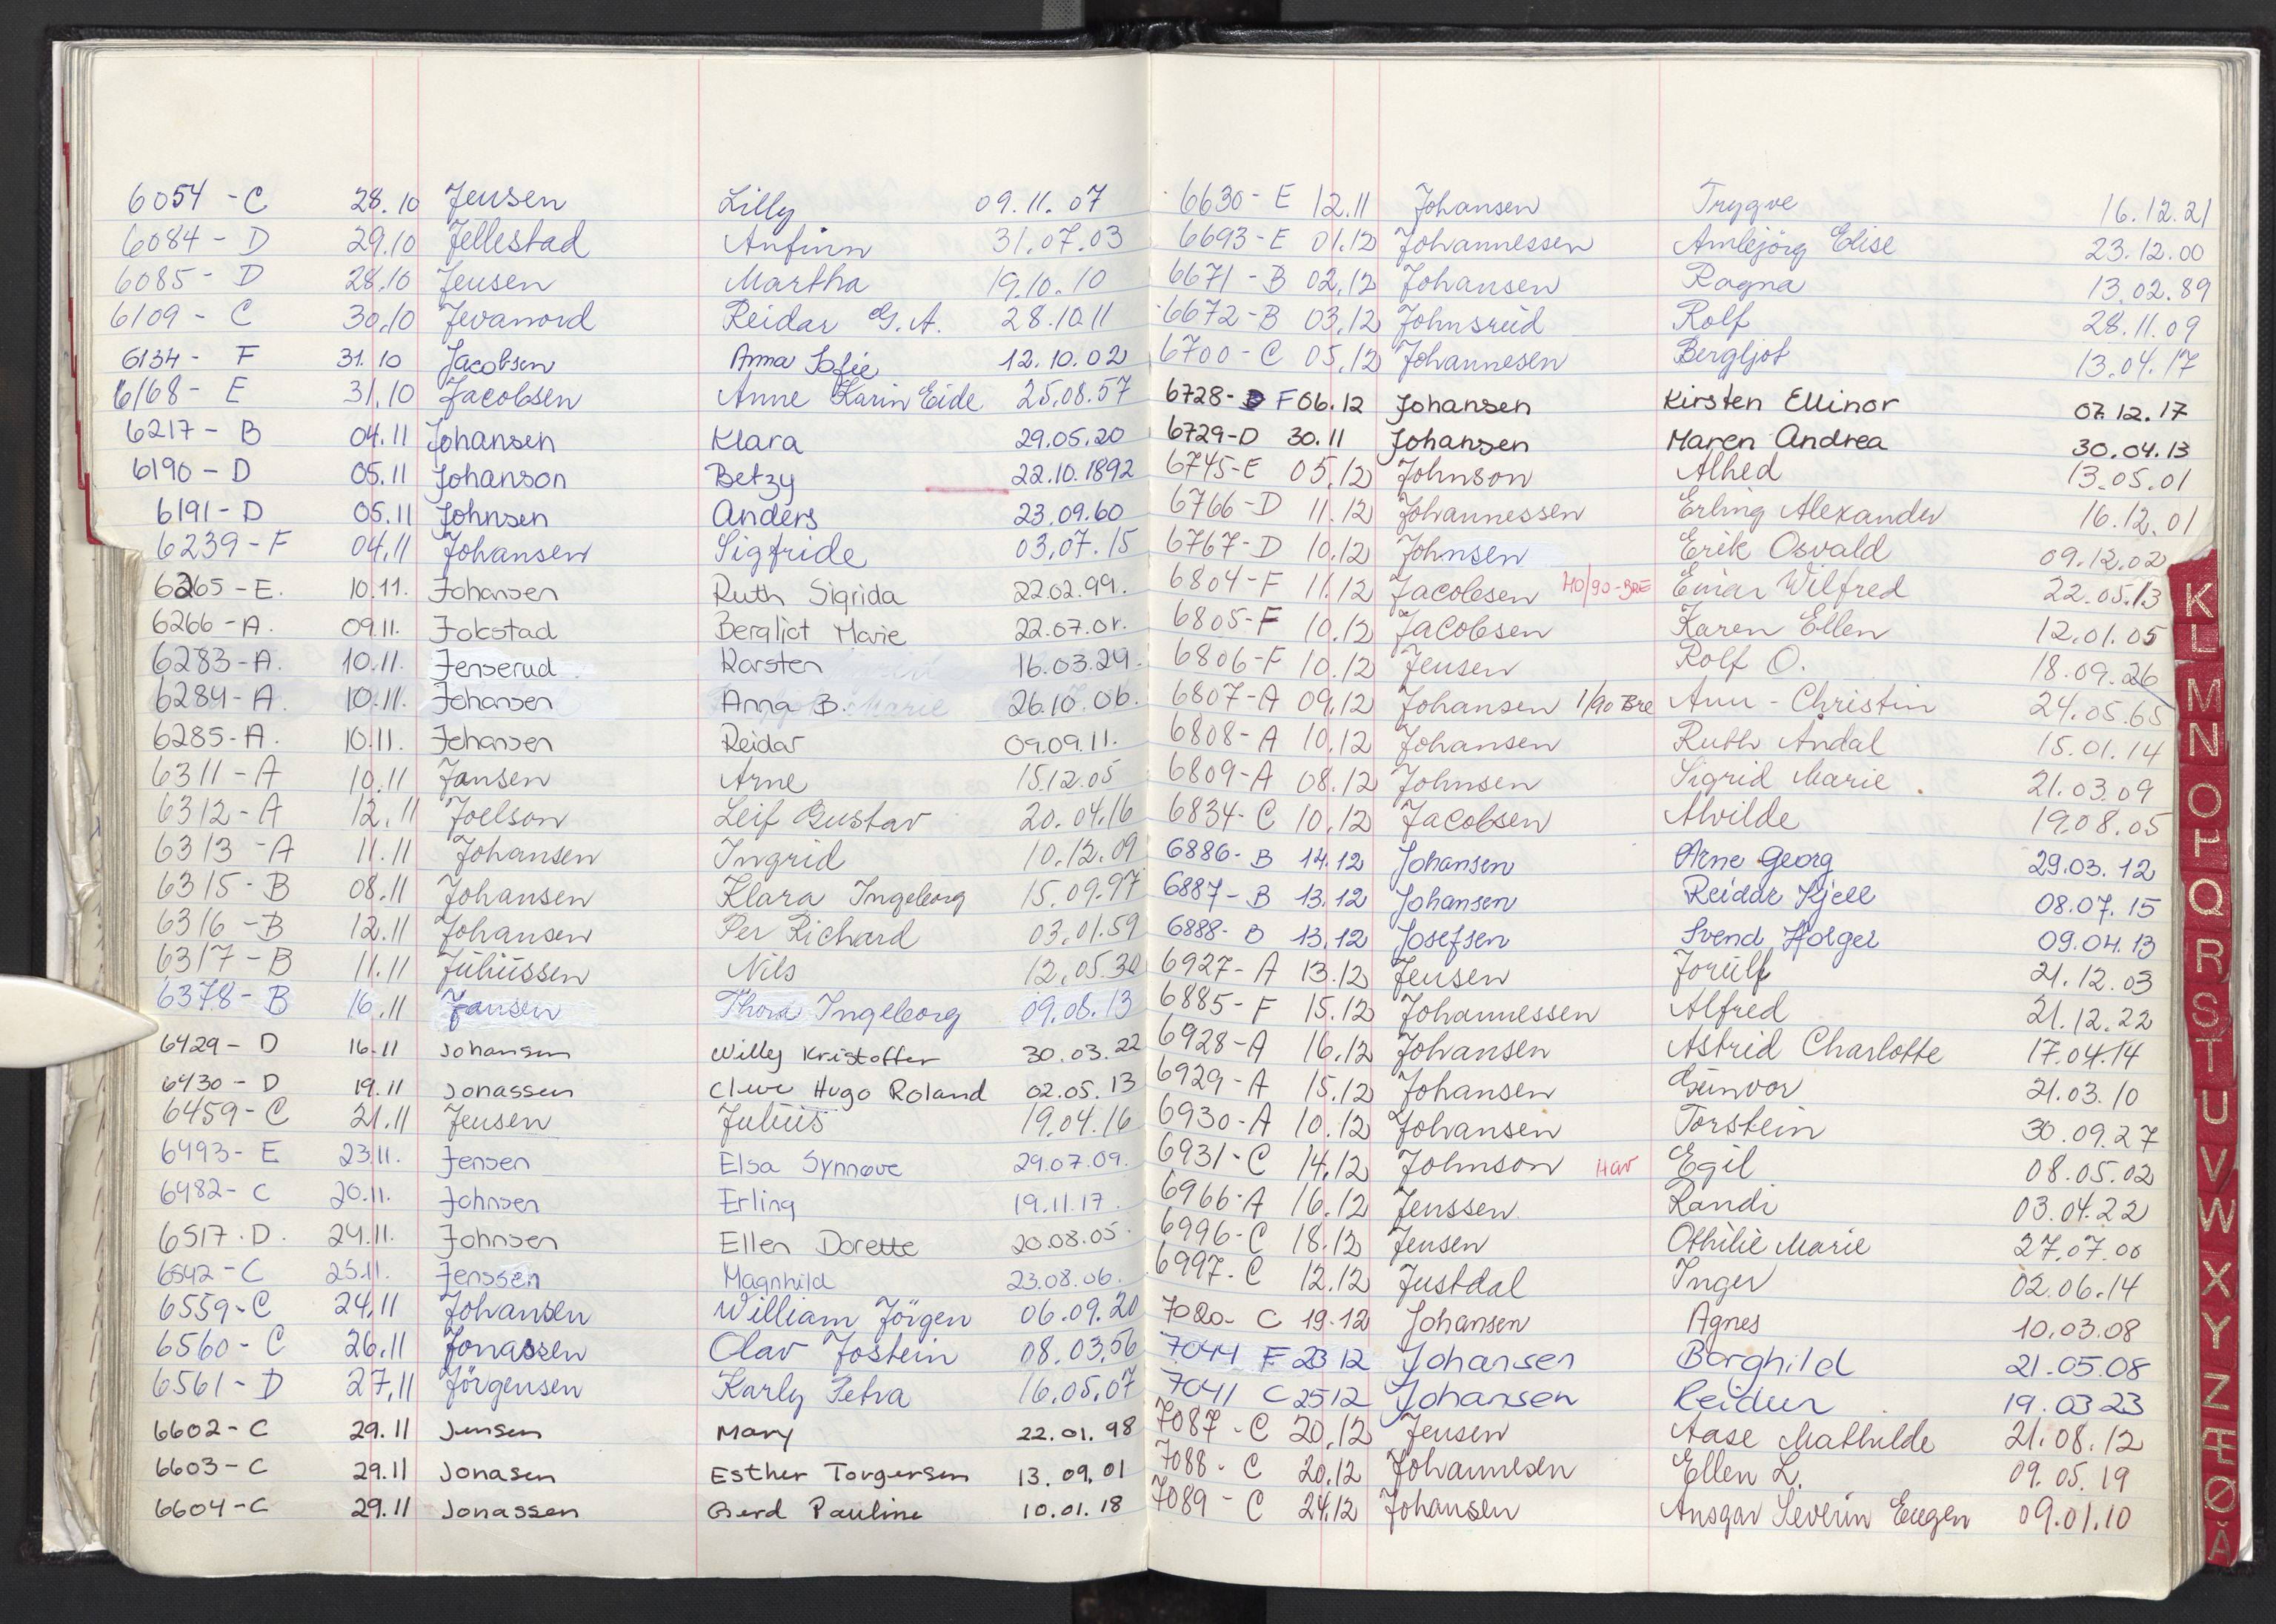 6054 - C 28.10 Jensen Lilly 09.11.07
6084 - D 29.10 Jellestad Anfinn 31.07.03
6085 - D 28.10 Jensen Martha 19.10.10
6109 - C 30.10 Jevanord Reidar G.A. 28.10.11
6134 - F 31.10 Jacobsen Anna Sofie 12.10.02
6168 - E 31.10 Jacobsen Anne Karin Eide 25.08.57
6217 - B 04.11 Johansen Klara 29.05.20
6190 - D 05.11 Johanson Betzy 22.10.1892
6191 - D 05.11 Johnsen Anders 23.09.60
6239 - F 04.11 Johansen Sigfride 03.07.15
6265 - E. 10.11. Johansen Ruth Sigrida 22.02.99.
6266 - A. 09.11. Jokstad Bergljot Marie 22.07.01.
6283 - A. 10.11. Jenserud Karsten 16.03.29.
6284 - A. 10.11. Johansen Anna B. 26.10.06.
6285 - A. 10.11. Johansen Reidar 09.09.11.
6311 - A 10.11 Jansen Arne 15.12.05
6312 - A 12.11 Joelson Leif Gustav 20.04.16
6313 - A 11.11 Johansen Ingrid 10.12.09
6315 - B 08.11 Johansen Klara Ingeborg 15.09.97
6316 - B 12.11 Johansen Per Richard 03.01.59
6317 - B 11.11 Juliussen Nils 12.05.30
6378 - B 16.11 Jansen Thora Ingeborg 09.08.13
6429 - D 16.11 Johansen Willy Kristoffer 30.03.22
6430 - D 19.11 Jonassen Hugo Roland 02.05.13
6459 - C 21.11 Jensen Julius 19.04.16
6493 - E 23.11. Jensen Elsa Synnøve 29.07.09.
6482 - C 20.11. Johnsen Erling 19.11.17.
6517. D. 24.11. Johnsen Ellen Dorette 20.08.05.
6542 - C 25.11. Jenssen Magnhild 23.08.06.
6559 - C 24.11 Johansen William Jörgen 06.09.20
6560 - C 26.11 Jonassen Olav Jostein 08.03.56
6561 - D 27.11 Jörgensen Karly Petra 16.05.07
6602 - C 29.11 Jensen Mary 22.01.98
6603 - C 29.11 Jonasen Esther Torgersen 13.09.01
6604 - C 29.11 Jonassen Gerd Pauline 10.01.18
6630 - E 12.11 Johansen Trygve 16.12.21
6693 - E 01.12 Johannessen Arnbjörg Elise 23.12.00
6671 - B 02.12 Johansen Ragna 13.02.89
6672 - B 03.12 Johnsrud Rolf 28.11.09
6700 - C 05.12 Johannesen Bergljot 13.04.17
6728 - F 06.12 Johansen Kirsten Ellinor 07.12.17
6729 - D 30.11 Johansen Maren Andrea 30.04.13
6745 - E 05.12 Johnson Alhed 13.05.01
6766 - D 11.12 Johannessen Erling Alexander 16.12.01
6767 - D 10.12 Johnsen Erik Osvald 09.12.02
6804 - F 11.12 Jacobsen HO/90-BRE Einar Wilfred 22.05.13
6805 - F 10.12 Jacobsen Karen Ellen 12.01.05
6806 - F 10.12 Jensen Rolf O. 18.09.26
6807 - A 09.12 Johansen 1/90 Bre Ann-Christin 24.05.65
6808 - A 10.12 Johansen Ruth Andal 15.01.14
6809 - A 08.12 Johnsen Sigrid Marie 21.03.09
6834 - C 10.12 Jacobsen Alvilde 19.08.05
6886 - B 14.12 Johansen Arne Georg 29.03.12
6887 - B 13.12 Johansen Reidar Kjell 08.07.15
6888 - B 13.12 Josefsen Svend Holger 09.04.13
6927 - A 13.12 Jensen Jorulf 21.12.03
6885 - F 15.12 Johannessen Alfred 21.12.22
6928 - A 16.12 Johansen Astrid Charlotte 17.04.14
6929 - A 15.12 Johansen Gunvor 21.03.10
6930 - A 10.12 Johansen Torstein 30.09.27
6931 - C 14.12 Johnson Hav Egil 08.05.02
6966 - A 16.12 Jenssen Randi 03.04.22
6996 - C 18.12 Jensen Othilie Marie 27.07.00
6997 - C 12.12 Justdal Inger 02.06.14
7020 - C 19.12 Johansen Agnes 10.03.08
7044 F 23 12 Johansen Borghild 21.05.08
7041 C 25 12 Johansen Reidun 19.03 23
7087 - C 20.12 Jensen Aase Mathilde 21.08.12
7088 - C 20.12 Johannesen Ellen L. 09.05.19
7089 - C 24.12 Johansen Ansgar Severin Eugen 09.01.10
K
L
M
N
O
P
Q
R
S
T
U
V
W
X
Y
Z
Æ
Ø
Å